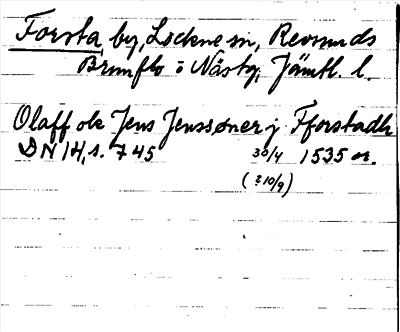 Forsta, by, Lockne sn, Revsunds
Brunflo o Näsk tg, Jämtl. l.
Olaff ok Jens Jenssøner j Fforstadh
DN 14, s. 745 30/4 1535 or.
(? 10/9)